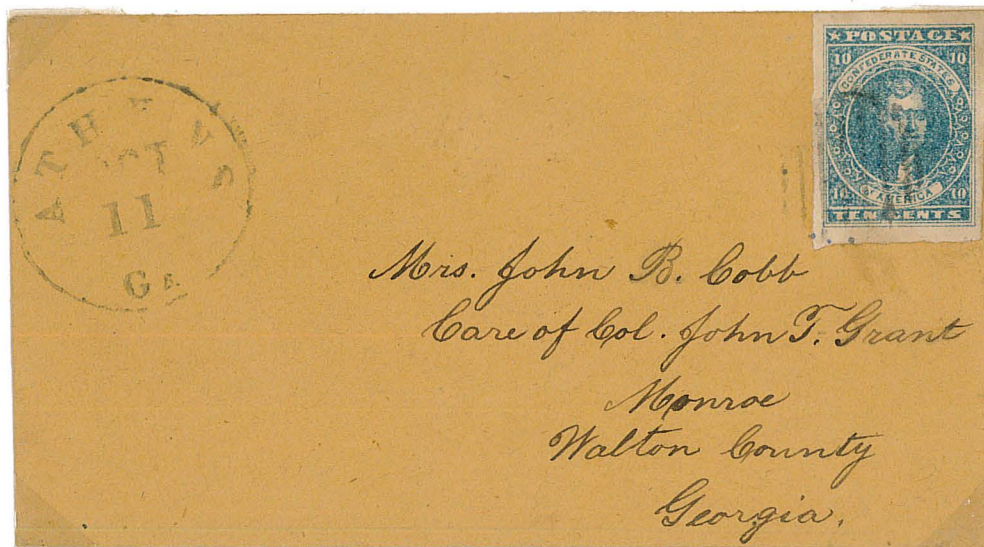 ATHENS
OCT
11
Ga.
★ POSTAGE ★
10 10
CONFEDERATE STATES
AMERICA
10 10
TEN CENTS
Mrs. John B. Cobb
Care of Col. John T. Grant
Monroe
Walton County
Georgia.